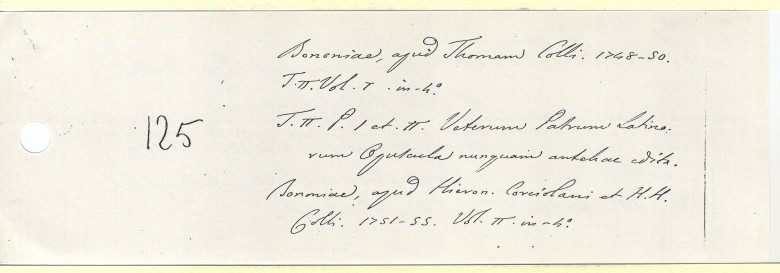 Bononiae, apud Thomam Colli. 1748-50.
T. II. Vol. I. in-4.º
125
T. II. P. I et II. Veterum Patrum Latino-
rum Opuscula nunquam antehac edita.
Bononiae, apud Hieron. Corciolani et H.H.
Colli. 1751-55. Vol. II. in-4º